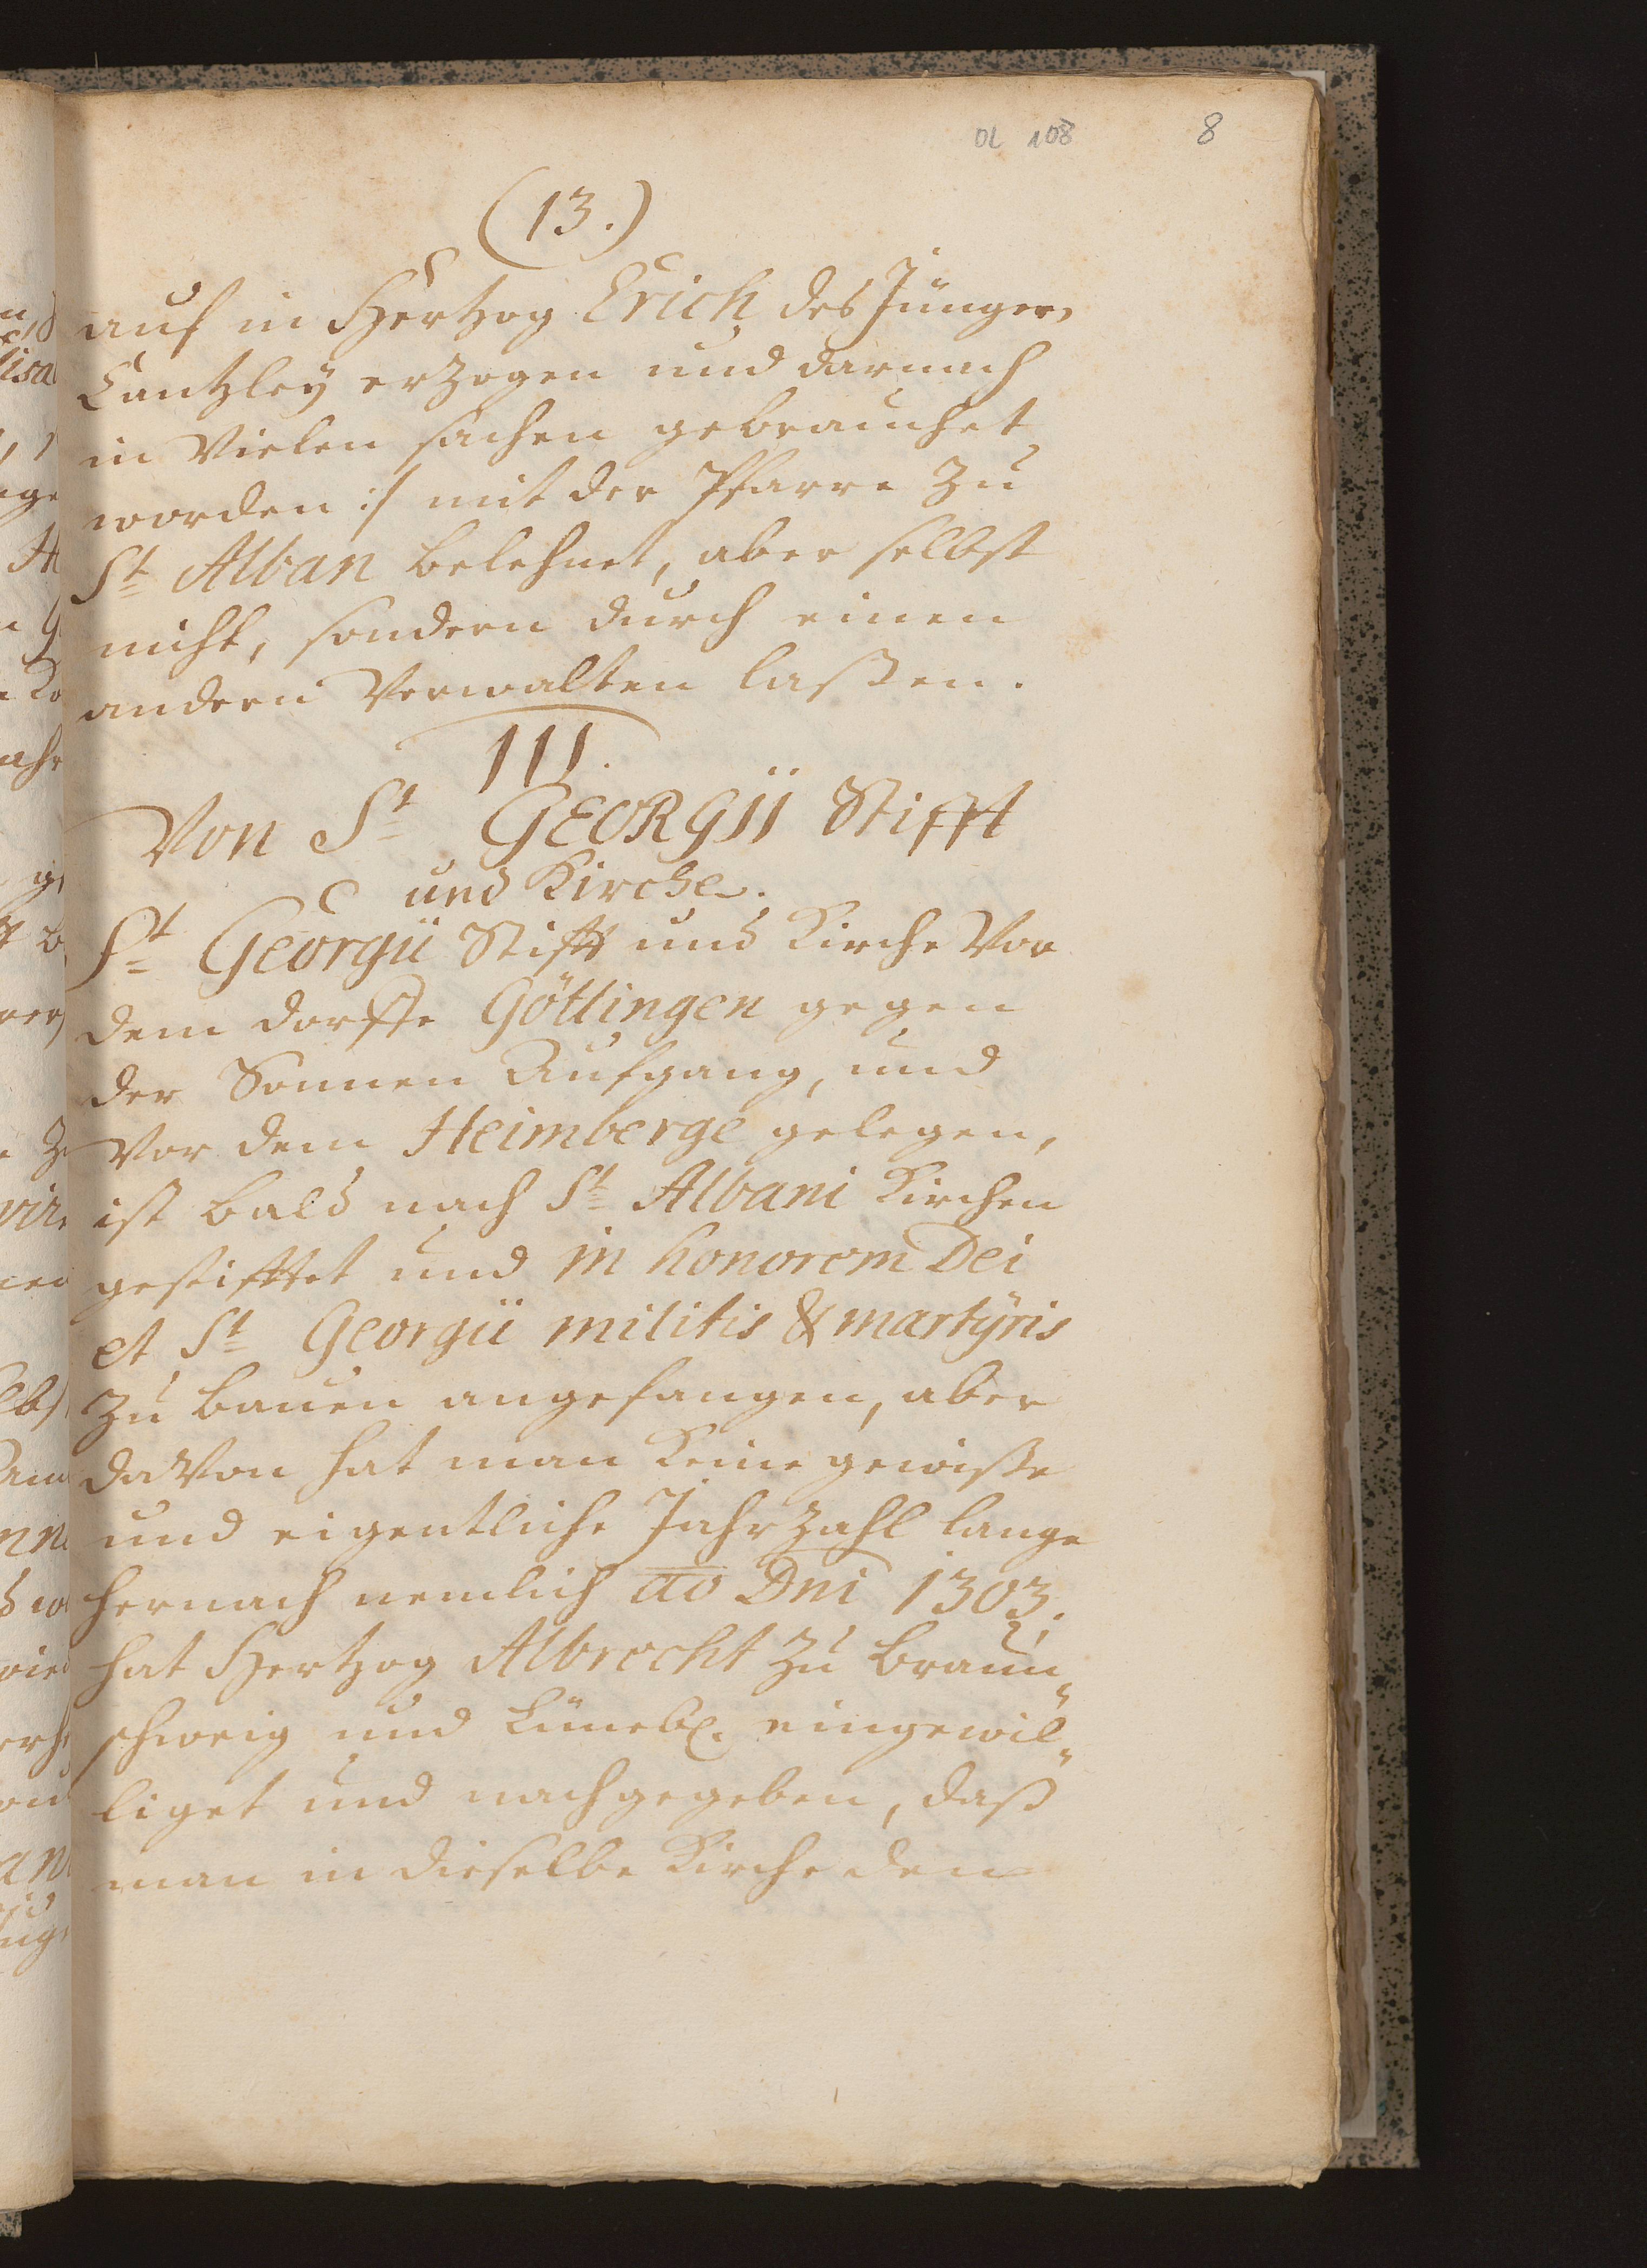 OL 108 8
(13.)
auf in Hertzog Erich, des Jüngern
Cantzley erzogen und darnach
in Vielen sachen gebrauchet
worden :/ mit der Pfarre zu
St Alban belehnet, aber selbst
nicht, sondern durch einen
andern Verwalten laßen.
III.
Von St GEORGII Stifft
und Kirche.
St Georgii Stifft und Kirche Vor
dem dorffe Göttingen gegen
der Sonnen Aufgang, und
Vor dem Heimberge gelegen,
ist bald nach St Albani Kirchen
gestifftet und in honorem Dei
et St Georgii militis & martÿris
zu bauen angefangen, aber
daVon hat man keine gewiße
und eigentliche Jahrzahl lange
hernach nemlich ao Dni 1303.
hat Hertzog Albrecht zu Braun„
schweig und Lüneb. eingewil„
liget und nachgegeben, daß
man in dieselbe Kirche den